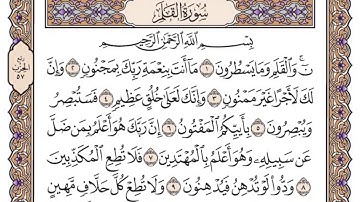 سُورَةُ القَلَمِ
بِسْمِ اللَّهِ الرَّحْمَٰنِ الرَّحِيمِ
نٓ ۚ وَالْقَلَمِ وَمَا يَسْطُرُونَ ١ مَا أَنتَ بِنِعْمَةِ رَبِّكَ بِمَجْنُونٍ ٢ وَإِنَّ
لَكَ لَأَجْرًا غَيْرَ مَمْنُونٍ ٣ وَإِنَّكَ لَعَلَىٰ خُلُقٍ عَظِيمٍ ٤ فَسَتُبْصِرُ
وَيُبْصِرُونَ ٥ بِأَييِّكُمُ الْمَفْتُونُ ٦ إِنَّ رَبَّكَ هُوَ أَعْلَمُ بِمَن ضَلَّ
عَن سَبِيلِهِ وَهُوَ أَعْلَمُ بِالْمُهْتَدِينَ ٧ فَلَا تُطِعِ الْمُكَذِّبِينَ
٨ وَدُّوا لَوْ تُدْهِنُ فَيُدْهِنُونَ ٩ وَلَا تُطِعْ كُلَّ حَلَّافٍ مَّهِينٍ
رُبع
الحزب
٥٧